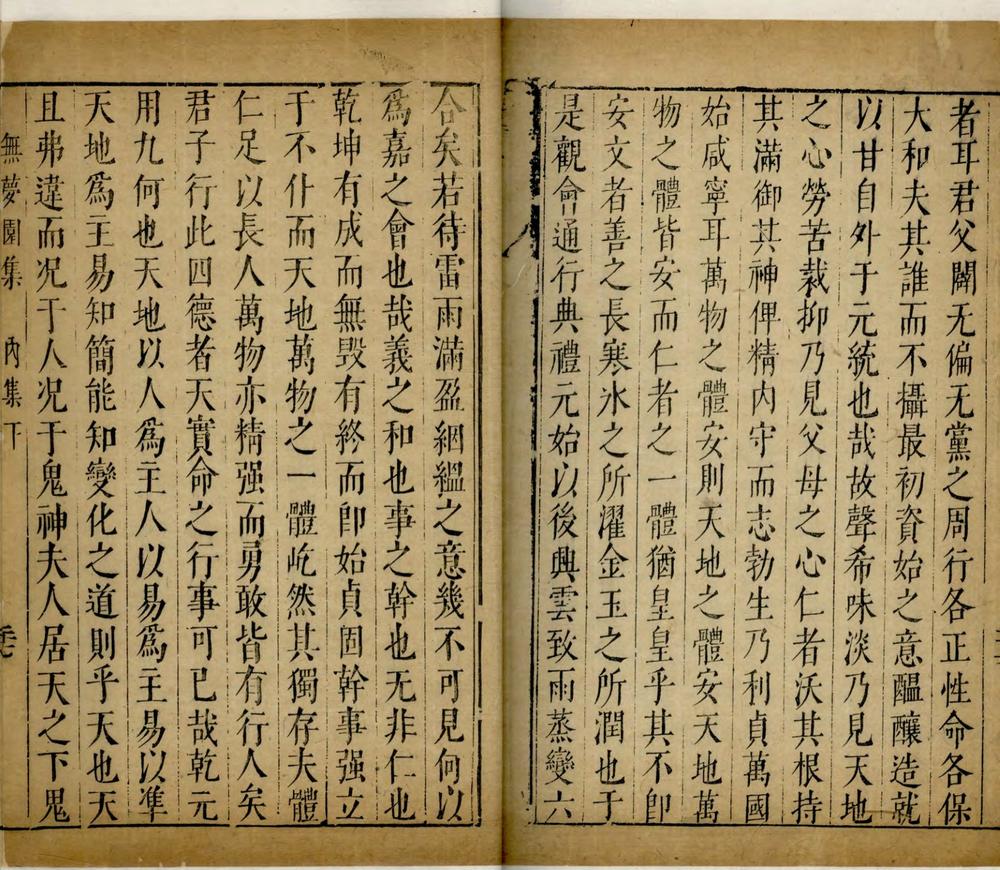 者耳君父闢无偏无黨之周行各正性命各保
大和夫其誰而不攝最初資始之意醞釀造就
以甘自外于元統也哉故聲希味淡乃見天地
之心勞苦裁抑乃見父母之心仁者沃其根持
其滿御其神俾精内守而志勃生乃利貞萬國
始咸寧耳萬物之體安則天地之體安天地萬
物之體皆安而仁者之一體猶皇皇乎其不卽
安文者善之長寒氷之所濯金玉之所潤也于
是觀會通行典禮元始以後興雲致雨蒸變六
合矣若待雷雨滿盈絪縕之意幾不可見何以
爲嘉之會也哉義之和也事之幹也无非仁也
乾坤有成而無毁有終而卽始貞固幹事强立
于不仆而天地萬物之一體屹然其獨存夫體
仁足以長人萬物亦精强而勇敢皆有行人矣
君子行此四德者天實命之行事可已哉乾元
用九何也天地以人爲主人以易爲主易以準
天地爲主易知簡能知變化之道則乎天也天
且弗違而况于人况于鬼神夫人居天之下鬼
無夢園集 内集下